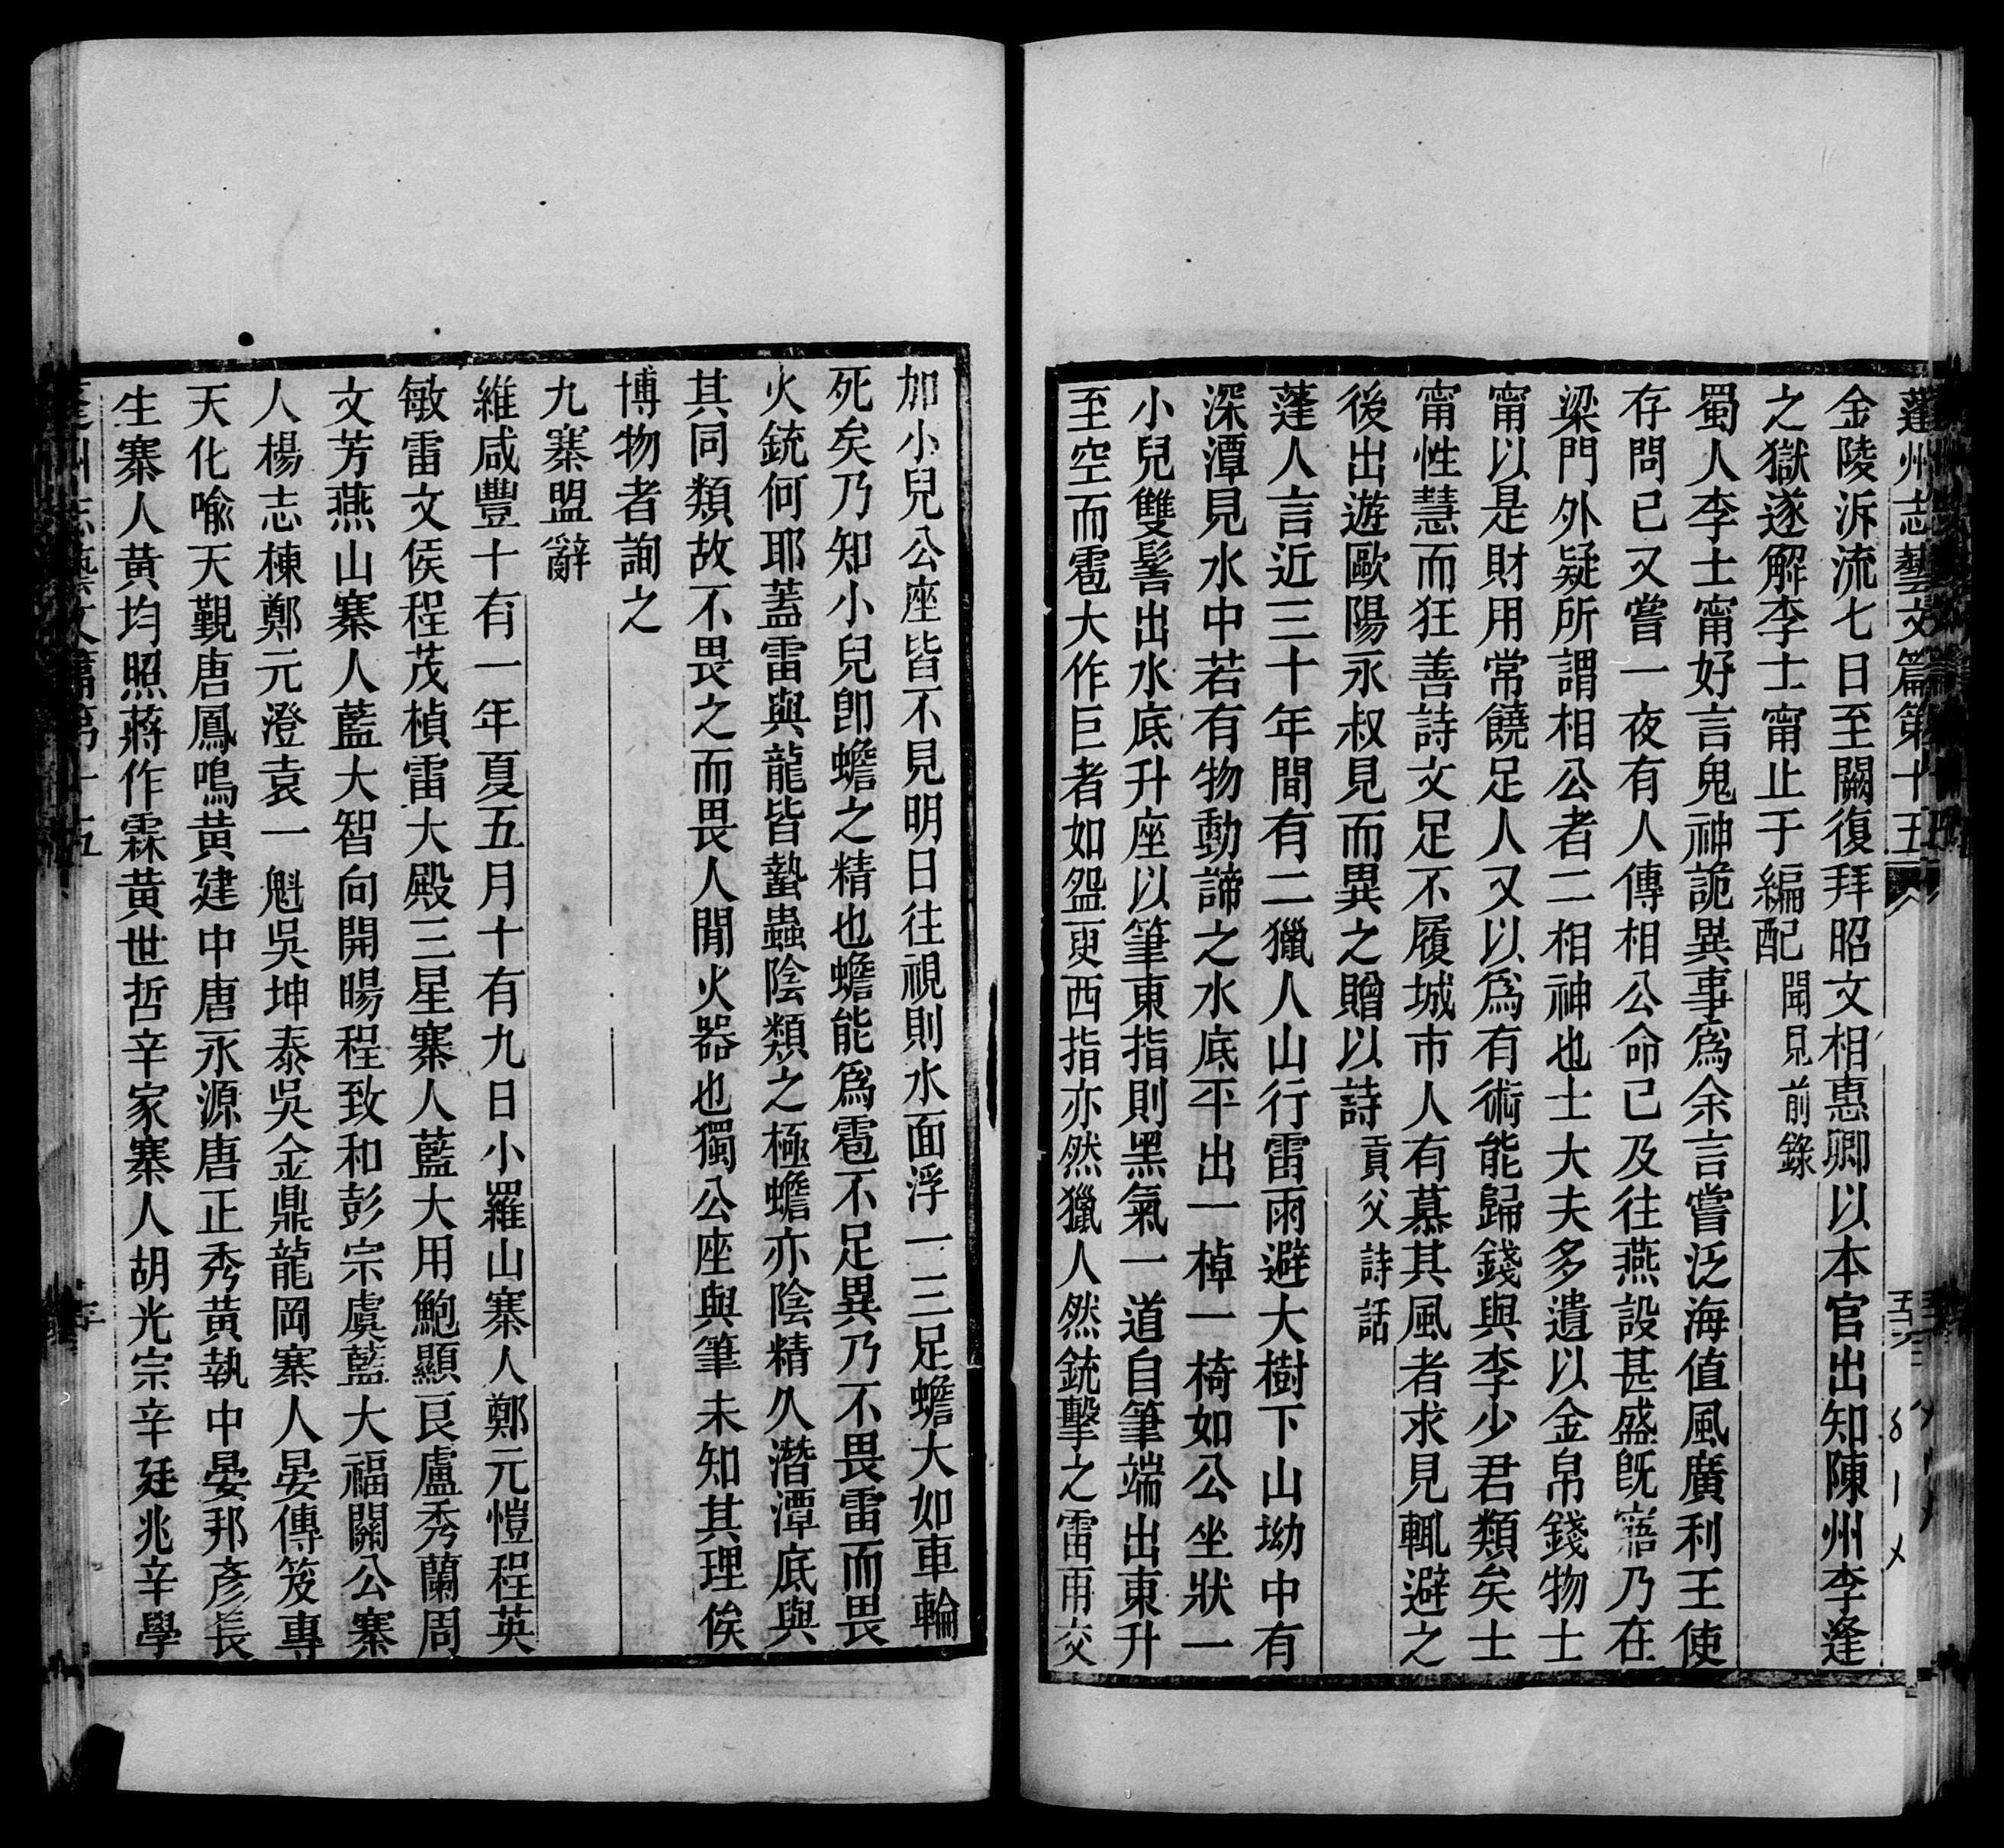 蓬州志藝文篇第十五
金陵泝流七日至闕復拜昭文相惠卿以本官出知陳州李逢
之獄遂解李士甯止于編配 聞見前錄
蜀人李士甯好言鬼神詭異事爲余言嘗泛海值風廣利王使
存問已又嘗一夜有人傳相公命已及往燕設甚盛旣寤乃在
梁門外疑所謂相公者二相神也士大夫多遺以金帛錢物士
甯以是財用常饒足人又以爲有術能歸錢與李少君類矣士
甯性慧而狂善詩文足不履城市人有慕其風者求見輒避之
後出遊歐陽永叔見而異之贈以詩 貢父詩話
蓬人言近三十年間有二獵人山行雷雨避大樹下山坳中有
深潭見水中若有物動諦之水底平出一棹一椅如公坐狀一
小兒雙髻出水底升座以筆東指則黑氣一道自筆端出東升
至空而雹大作巨者如盌更西指亦然獵人然銃擊之雷雨交
加小兒公座皆不見明日往視則水面浮一三足蟾大如車輪
死矣乃知小兒卽蟾之精也蟾能爲雹不足異乃不畏雷而畏
火銃何耶蓋雷與龍皆蟄蟲陰類之極蟾亦陰精久潛潭底與
其同類故不畏之而畏人閒火器也獨公座與筆未知其理俟
博物者詢之
九寨盟辭
維咸豐十有一年夏五月十有九日小羅山寨人鄭元愷程英
敏雷文俟程茂楨雷大殿三星寨人藍大用鮑顯良盧秀蘭周
文芳燕山寨人藍大智向開暘程致和彭宗虞藍大福關公寨
人楊志棟鄭元澄袁一魁吳坤泰吳金鼎龍岡寨人晏傳笈專
天化喩天覲唐鳳鳴黃建中唐永源唐正秀黃執中晏邦彥長
生寨人黃均照蔣作霖黃世哲辛家寨人胡光宗辛廷兆辛學